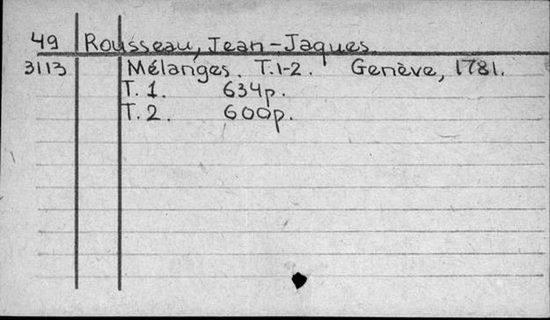 49 Rousseau, Jean-Jaques.
3113 Mélanges. T.1-2. Genève, 1781.
T. 1. 634p.
T. 2. 600p.